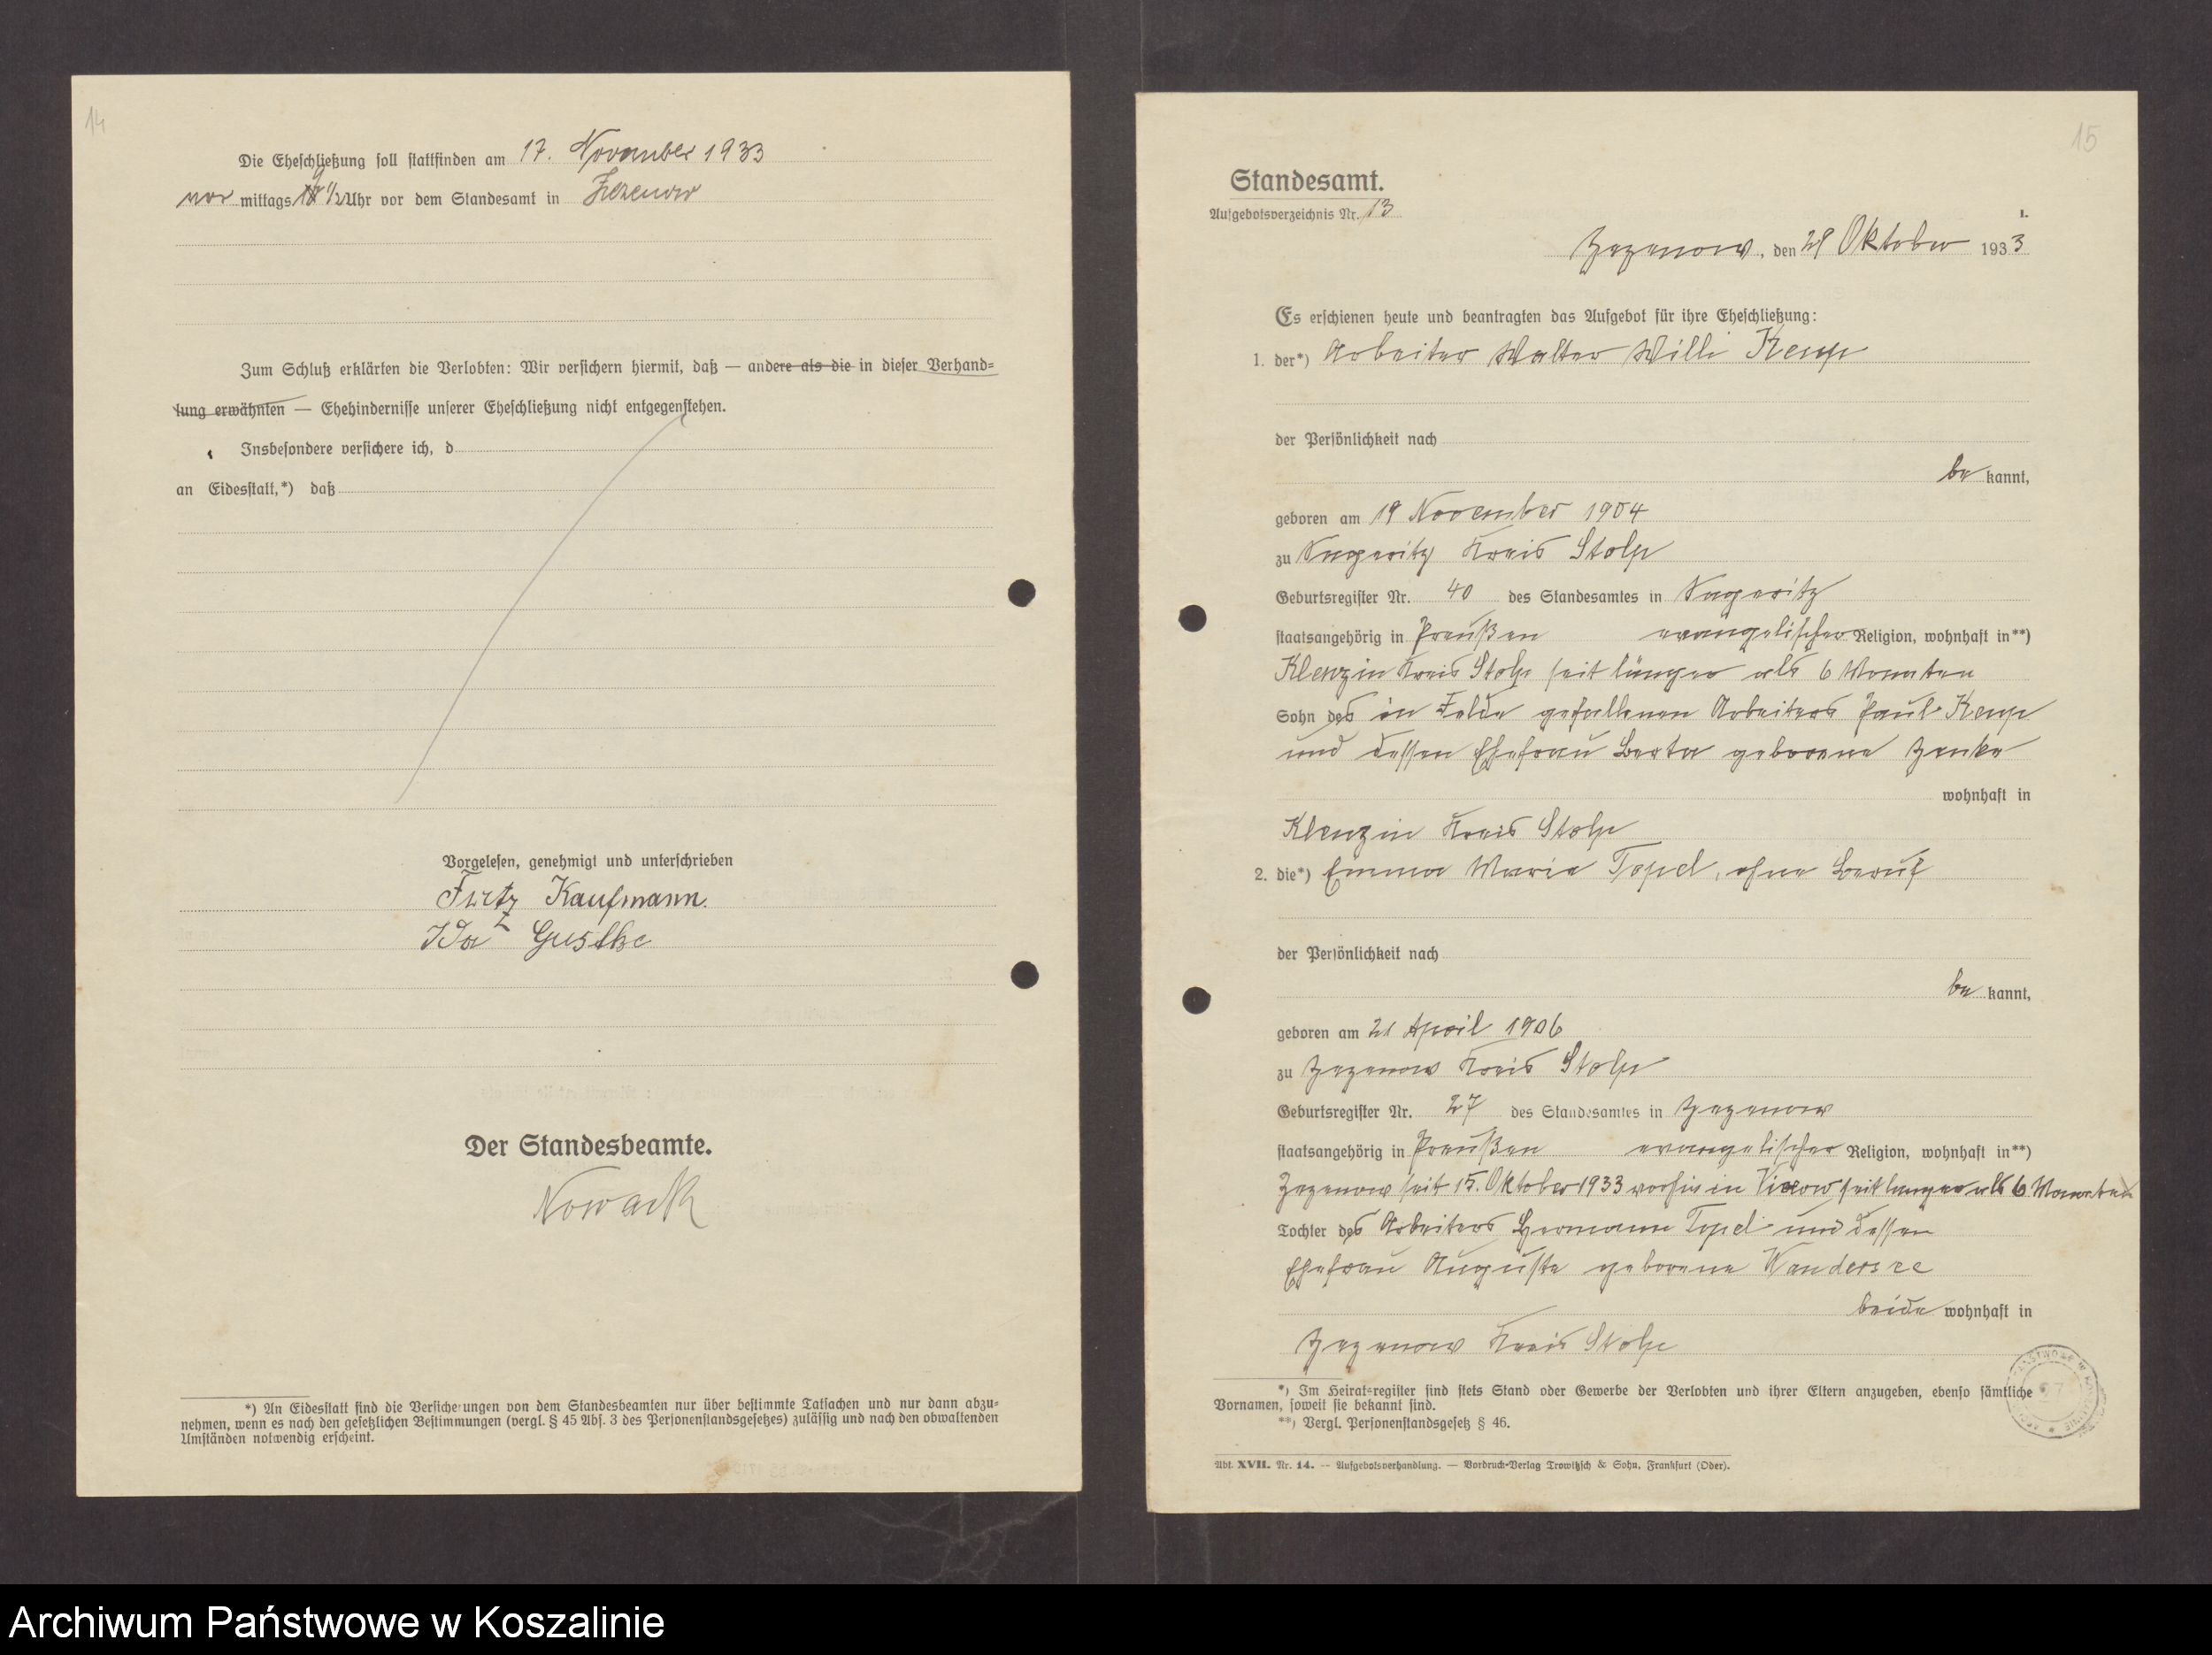 14
Die Eheschließung soll stattfinden am 17. November 1933
vor mittags 1/2 Uhr vor dem Standesamt in Zezenow
Zum Schluß erklärten die Verlobten: Wir versichern hiermit, daß — andere als die in dieser Verhand-
lung erwähnten — Ehehindernisse unserer Eheschließung nicht entgegenstehen.
Insbesondere versichere ich, d
an Eidesstatt,*) daß
Vorgelesen, genehmigt und unterschrieben
Fritz Kaufmann.
Ida Gustke
Der Standesbeamte.
Nowack
*) An Eidesstatt sind die Versicherungen von dem Standesbeamten nur über bestimmte Tatsachen und nur dann abzu-
nehmen, wenn es nach den gesetzlichen Bestimmungen (vergl. § 45 Abs. 3 des Personenstandsgesetzes) zulässig und nach den obwaltenden
Umständen notwendig erscheint.
15
Standesamt.
Aufgebotsverzeichnis Nr. 13
1.
Zezenow, den 29 Oktober 1933
Es erschienen heute und beantragten das Aufgebot für ihre Eheschließung:
1. der*) Arbeiter Walter Willi Kemp
der Persönlichkeit nach
be kannt,
geboren am 19 November 1904
zu Vangeritz Kreis Stolp
Geburtsregister Nr. 40 des Standesamtes in
staatsangehörig in Preußen evangelischer Religion, wohnhaft in**)
Klenzin Kreis Stolp seit länger als 6 Monaten
Sohn des in Felde gefallenen Arbeiters Paul Kemp
und dessen Ehefrau Berta geborene Zenke
wohnhaft in
Klenzin Kreis Stolp
2. die*) Emma Marie Topel, ohne Beruf
der Persönlichkeit nach
be kannt,
geboren am 21 April 1906
zu Zezenow Kreis Stolp
Geburtsregister Nr. 27 des Standesamtes in Zezenow
staatsangehörig in Preußen evangelischer Religion, wohnhaft in**)
Zezenow seit 15. Oktober 1933 vorhin in Vixow seit länger als 6 Monaten
Tochter des Arbeiters Hermann Topel und dessen
Ehefrau Auguste geborene Wandersee
beide wohnhaft in
Zezenow Kreis Stolp
*) Im Heiratsregister sind stets Stand oder Gewerbe der Verlobten und ihrer Eltern anzugeben, ebenso sämtliche
Vornamen, soweit sie bekannt sind.
**) Vergl. Personenstandsgesetz § 46.
Abt. XVII. Nr. 14. — Aufgebotsverhandlung. — Vordruck-Verlag Trowitzsch & Sohn, Frankfurt (Oder).
Archiwum Państwowe w Koszalinie